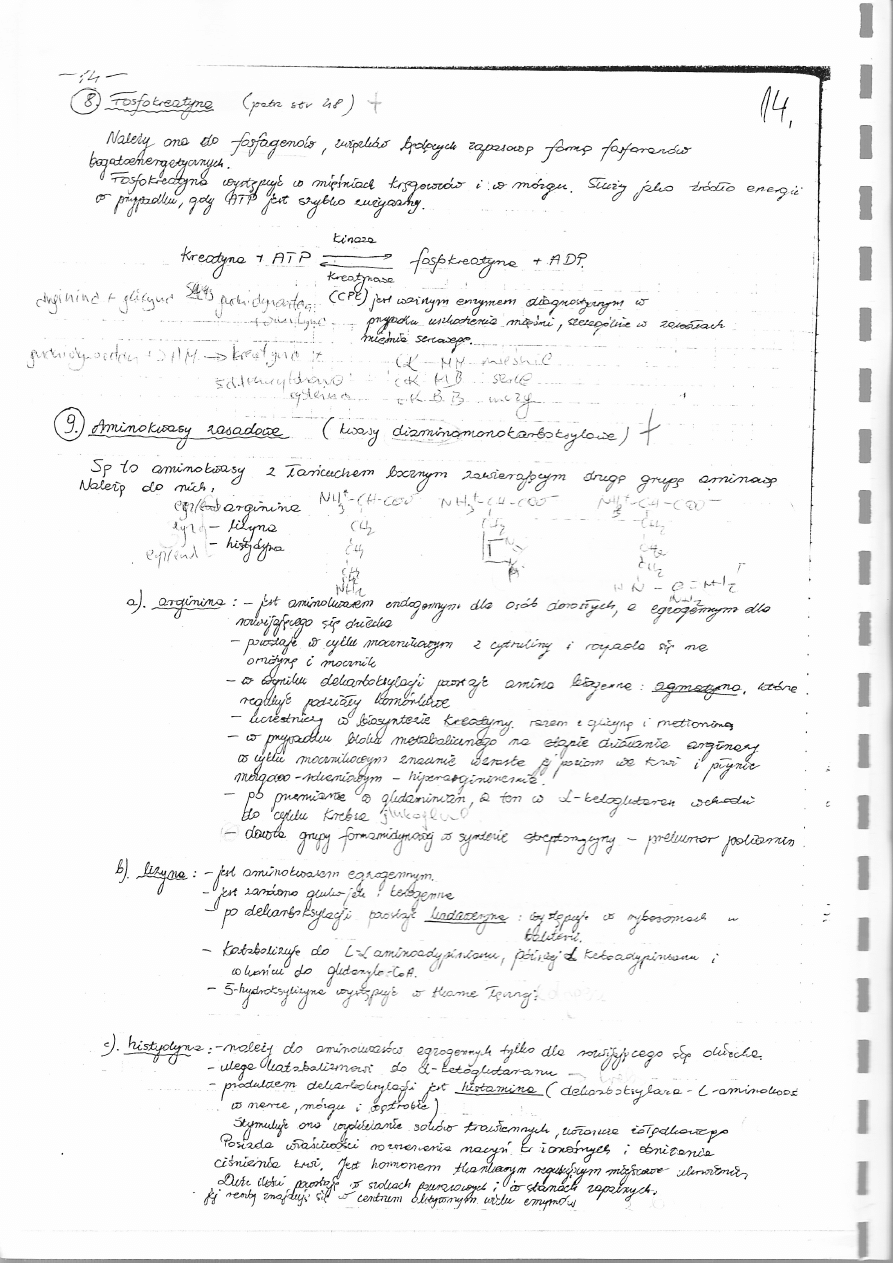 -14-
14.
8. Fosfokreatyna (patrz str 48) +
Należy ona do fosfagenów, związków będących zapasową formą fosforanów
bogatoenergetycznych.
Fosfokreatyna występuje w mięśniach kręgowców i w mózgu. Służy jako źródło energii
w przypadku, gdy ATP jest szybko zużywany.
kinaza
Kreatyna + ATP ⇌ fosfokreatyna + ADP.
kreatynowa
(CPK) jest ważnym enzymem diagnostycznym w
arginina + glicyna
przypadku uszkodzenia mięśni, szczególnie w zawałach
mięśnia sercowego.
→ kreatyna +
CK MM mięśnie
CK MB serce
CK BB mózg
9. Aminokwasy zasadowe (kwasy diaminomonokarboksylowe) +
Są to aminokwasy z łańcuchem bocznym zawierającym drugą grupę aminową
Należą do nich,
egz/end - arginina NH3+-CH-COO- NH3+-CH-COO- NH3+-CH-COO-
egzo - lizyna CH2 CH2 CH2
egz/end - histydyna CH2 CH2
CH2 CH2
a). arginina : - jest aminokwasem endogennym dla osób dorosłych, a egzogennym dla
rozwijającego się dziecka
- powstaje w cyklu mocznikowym z cytruliny i rozpada się na
ornitynę i mocznik
- w wyniku dekarboksylacji powstaje amina biogenna : agmatyna, która
reguluje podziały komórkowe
- uczestniczy w biosyntezie kreatyny razem z glicyną i metioniną
- w przypadku bloku metabolicznego na etapie działania arginazy
w cyklu mocznikowym znacznie wzrasta jej poziom we krwi i płynie
mózgowo-rdzeniowym - hiperargininemia.
- po przemianie w glutaminian, a ten w α-ketoglutaran wchodzi
do cyklu Krebsa
- dawca grupy formamidynowej w syntezie streptomycyny - prekursor poliamin
b). lizyna : - jest aminokwasem egzogennym.
- jest zarówno gluko- jak i ketogenna
- po dekarboksylacji powstaje kadaweryna : występuje w rybosomach u
bakterii.
- katabolizuje do L-α aminoadypinianu, później α ketoadypinianu i
w końcu do glutarylo-CoA.
- 5-hydroksylizyna występuje w tkance łącznej.
c). histydyna : - należy do aminokwasów egzogennych tylko dla rozwijającego się dziecka.
- ulega katabolizmowi do α-ketoglutaranu
- produktem dekarboksylacji jest histamina (dekarboksylaza-L-aminokwas.
w nerce, mózgu i wątrobie)
Stymuluje ona wydzielanie soków trawiennych, żołądkowego
Posiada właściwości rozszerzania naczyń i obniżania
ciśnienia krwi. Jest hormonem tkankowym regulującym miejscowe ukrwienie.
Duże ilości powstają w stanach i w stanach zapalnych.
Jej reszty znajdują się w centrum aktywnym wielu enzymów